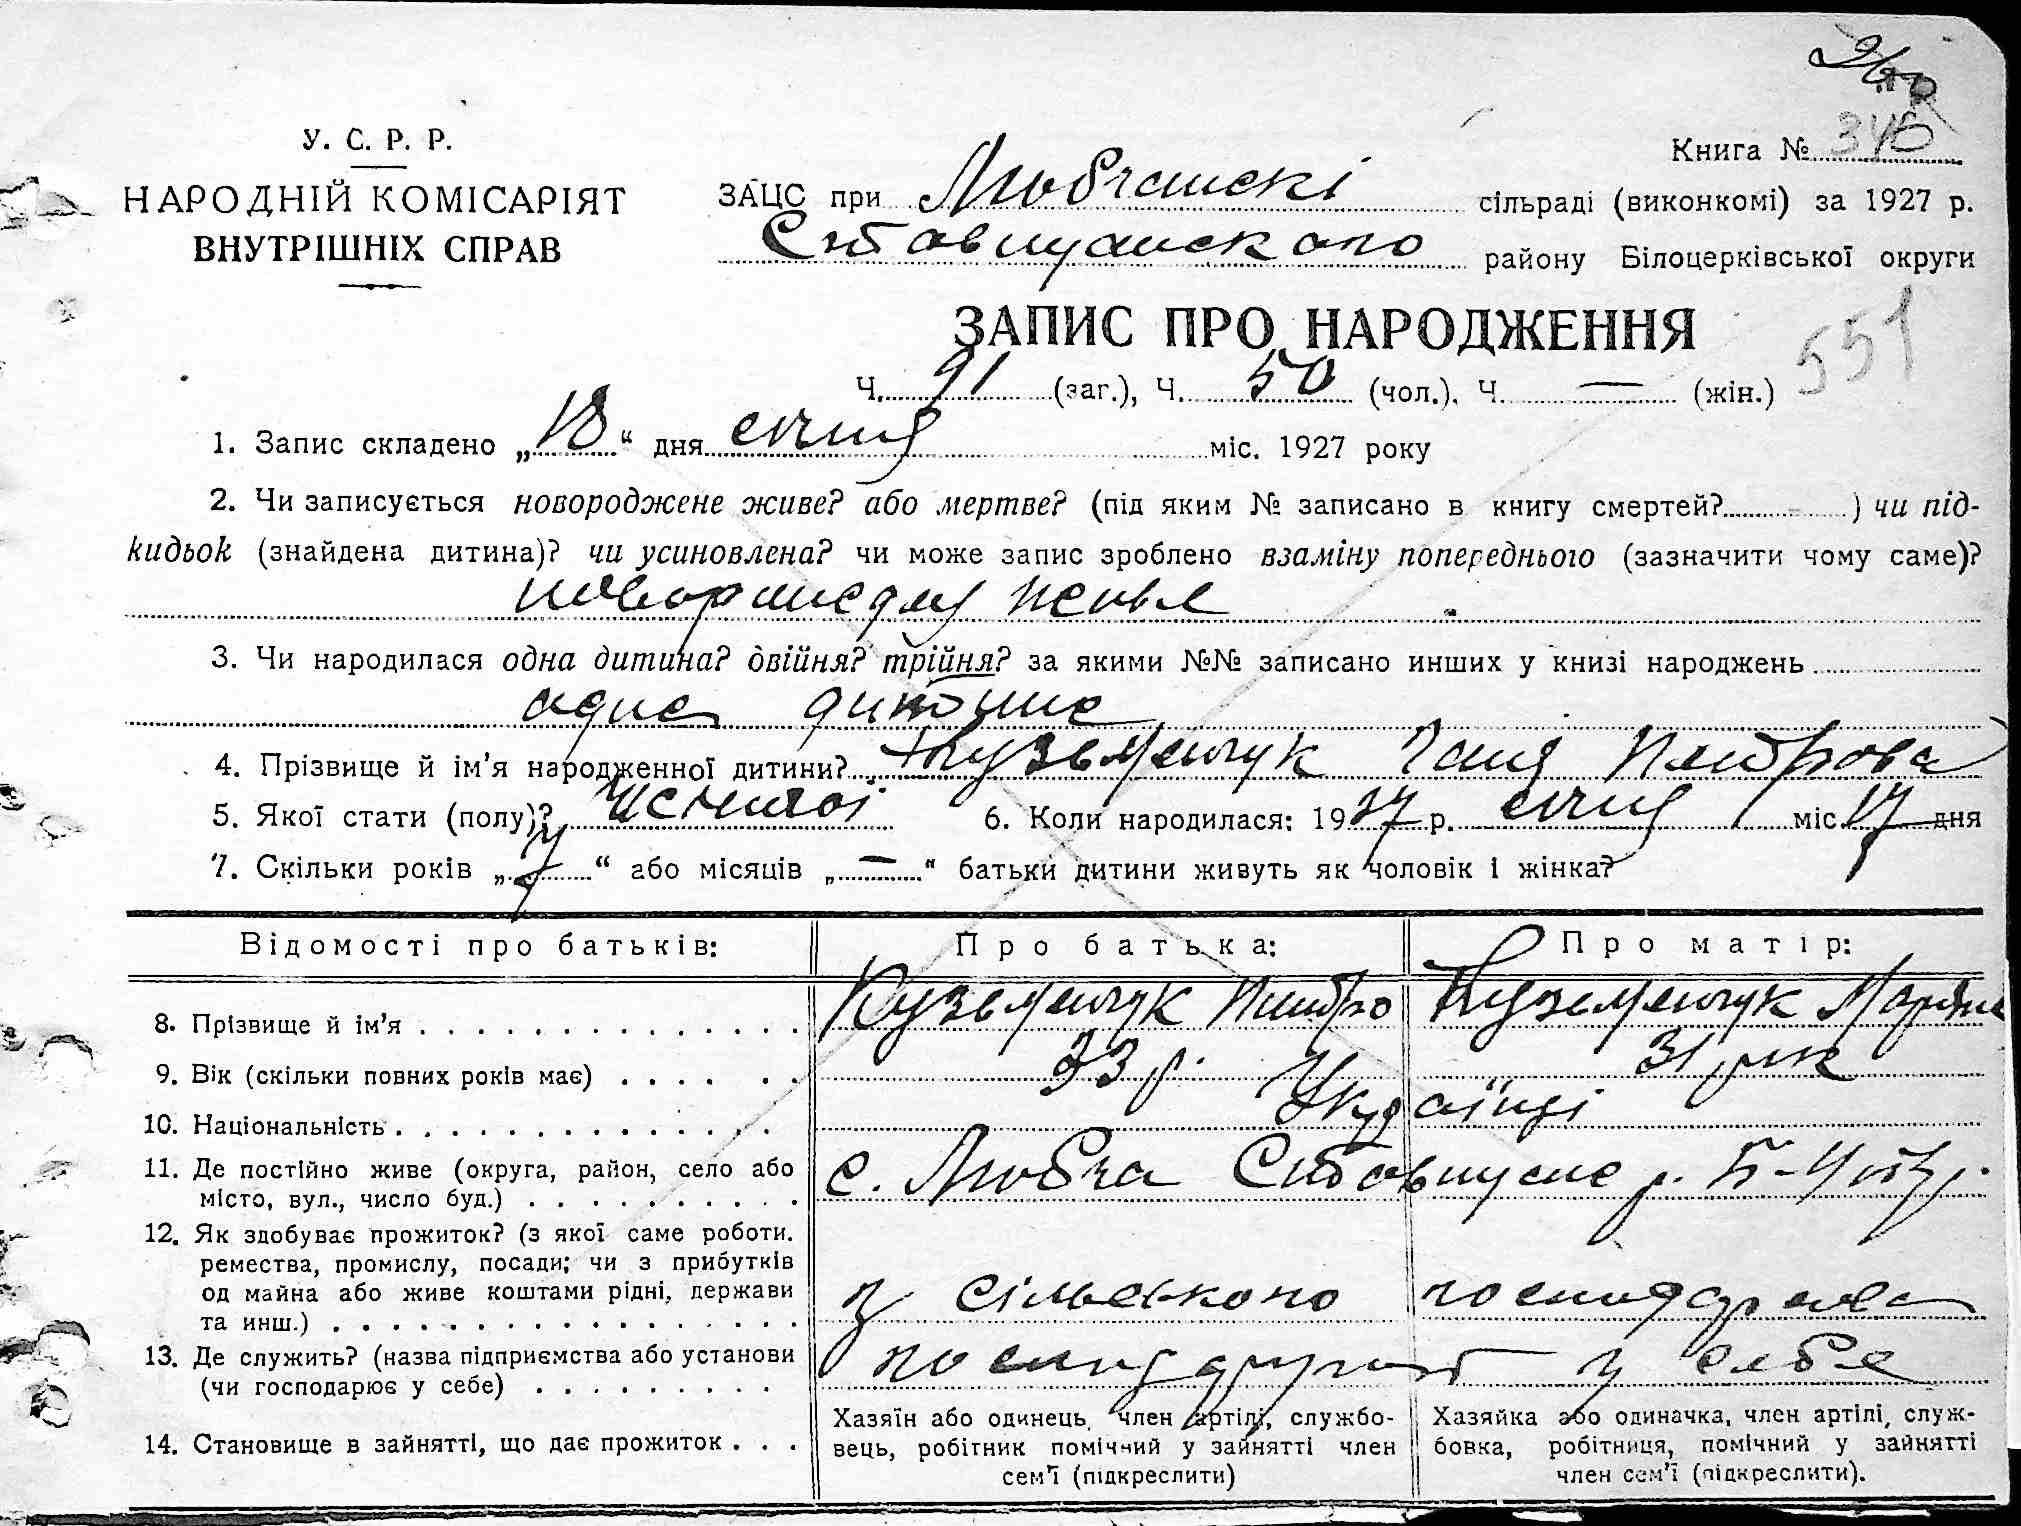 Книга № 346
У. С. Р. Р.
НАРОДНІЙ КОМІСАРІЯТ
ВНУТРІШНІХ СПРАВ
ЗАЦС при Любчанскі сільраді (виконкомі) за 1927 р.
Ставищанского району Білоцерківської округи
ЗАПИС ПРО НАРОДЖЕННЯ
551
Ч. 91 (заг.), Ч. 50 (чол.), Ч. — (жін.)
1. Запис складено „18“ дня січня міс. 1927 року
2. Чи записується новороджене живе? або мертве? (під яким № записано в книгу смертей? - ) чи під-
кидьок (знайдена дитина)? чи усиновлена? чи може запис зроблено взаміну попереднього (зазначити чому саме)?
живе
3. Чи народилася одна дитина? двійня? трійня? за якими №№ записано инших у книзі народжень
одна дитина
4. Прізвище й ім'я народженної дитини? Кузьменчук Ганя Петрова
5. Якої стати (полу)? жіночої 6. Коли народилася: 1927 р. січня міс. 17 дня
7. Скільки років „7“ або місяців „—“ батьки дитини живуть як чоловік і жінка?
Відомості про батьків: Про батька: Про матір:
8. Прізвище й ім'я . . . Кузьменчук Петро Кузьменчук Марія
9. Вік (скільки повних років має) . . . . 33 р. 31 рік
10. Національність . . . Українці
11. Де постійно живе (округа, район, село або
місто, вул., число буд.) . . . с. Любча Ставищане р. Б-Ц окр.
12. Як здобуває прожиток? (з якої саме роботи.
ремества, промислу, посади; чи з прибутків
од майна або живе коштами рідні, держави
та инш.) . . . з сільського господарства
13. Де служить? (назва підприємства або установи
(чи господарює у себе) . . . господарюют у себе
14. Становище в зайнятті, що дає прожиток . . .
Хазяїн або одинець, член артілі, службо-
вець, робітник помічний у зайнятті член
сем'ї (підкреслити)
Хазяйка або одиначка, член артілі, служ-
бовка, робітниця, помічний у зайнятті
член сем'ї (підкреслити).